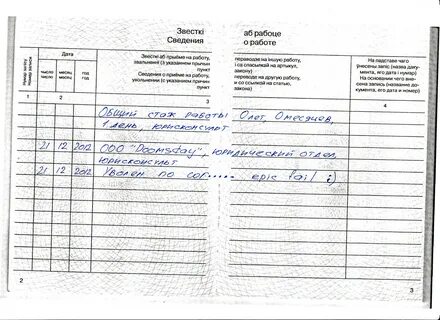 Звесткі
Сведения
аб рабоце
о работе
Нумар запісу
Номер записи
Дата
число
число
месяц
месяц
год
год
Звесткі аб прыёме на работу,
звальненні (з указаннем прычын
пункт
Сведения о приёме на работу,
увольнении (с указанием причин
пункт
пераводзе на іншую работу,
і са спасылкай на артыкул,
закону)
переводе на другую работу,
и со ссылкой на статью,
закона)
На падставе чаго
ўнесены запіс (назва дакумента, яго дата і нумар)
На основании чего внесена запись (название документа, его дата и номер)
1 2 3 4
Общий стаж работы 0 лет, 0 месяцев,
1 день, юрисконсульт
21 12 2012 ООО "Doomsday", юридический отдел,
юрисконсульт
21 12 2012 Уволен по сог..... epic fail ;)
2
3